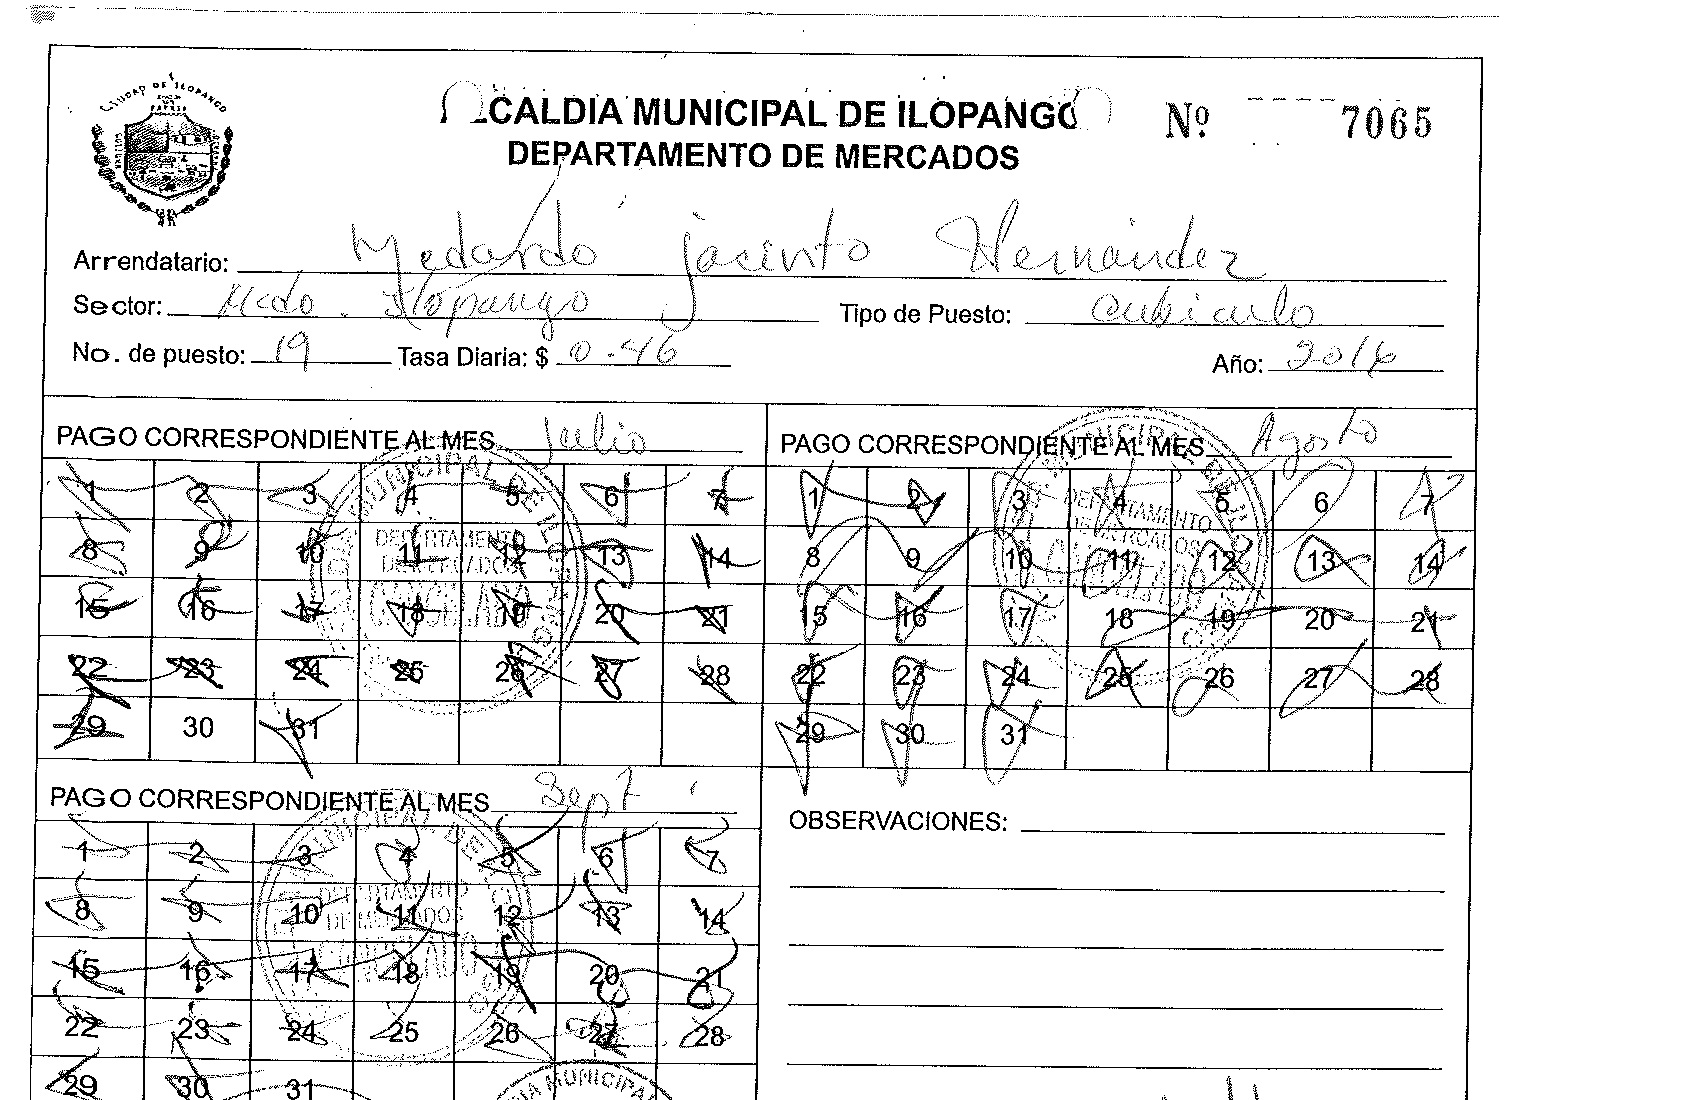 CIUDAD DE ILOPANGO
ALCALDIA MUNICIPAL DE ILOPANGO
Nº 7065
DEPARTAMENTO DE MERCADOS
Arrendatario: Medardo Jacinto Hernández
Sector: Mcdo. Ilopango Tipo de Puesto: cubiculo
No. de puesto: 19 Tasa Diaria: $ 0.46 Año: 2016
PAGO CORRESPONDIENTE AL MES Julio
1 2 3 4 5 6 7
8 9 10 11 12 13 14
15 16 17 18 19 20 21
22 23 24 25 26 27 28
29 30 31
DEPARTAMENTO
DE MERCADOS
CANCELADO
PAGO CORRESPONDIENTE AL MES Agosto
1 2 3 4 5 6 7
8 9 10 11 12 13 14
15 16 17 18 19 20 21
22 23 24 25 26 27 28
29 30 31
DEPARTAMENTO
DE MERCADOS
CANCELADO
PAGO CORRESPONDIENTE AL MES Sept
1 2 3 4 5 6 7
8 9 10 11 12 13 14
15 16 17 18 19 20 21
22 23 24 25 26 27 28
29 30 31
DEPARTAMENTO
DE MERCADOS
CANCELADO
OBSERVACIONES: